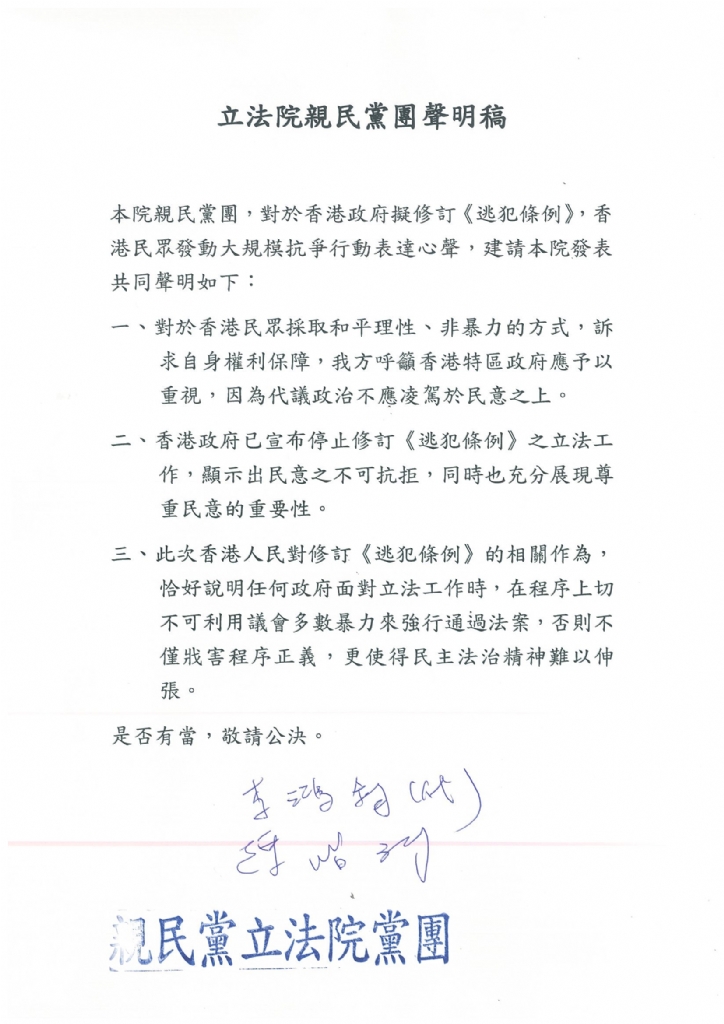 立法院親民黨團聲明稿
本院親民黨團，對於香港政府擬修訂《逃犯條例》，香
港民眾發動大規模抗爭行動表達心聲，建請本院發表
共同聲明如下：
一、對於香港民眾採取和平理性、非暴力的方式，訴
求自身權利保障，我方呼籲香港特區政府應予以
重視，因為代議政治不應凌駕於民意之上。
二、香港政府已宣布停止修訂《逃犯條例》之立法工
作，顯示出民意之不可抗拒，同時也充分展現尊
重民意的重要性。
三、此次香港人民對修訂《逃犯條例》的相關作為，
恰好說明任何政府面對立法工作時，在程序上切
不可利用議會多數暴力來強行通過法案，否則不
僅戕害程序正義，更使得民主法治精神難以伸
張。
是否有當，敬請公決。
李鴻鈞(代)
親民黨立法院黨團